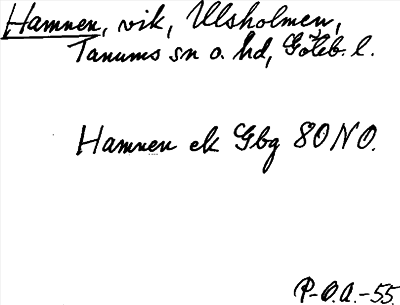 Hamnen, vik, Ulsholmen,
Tanums sn o. hd, Göteb. l.
Hamnen ek Gbg 80 NO.
P-O.A.-55.